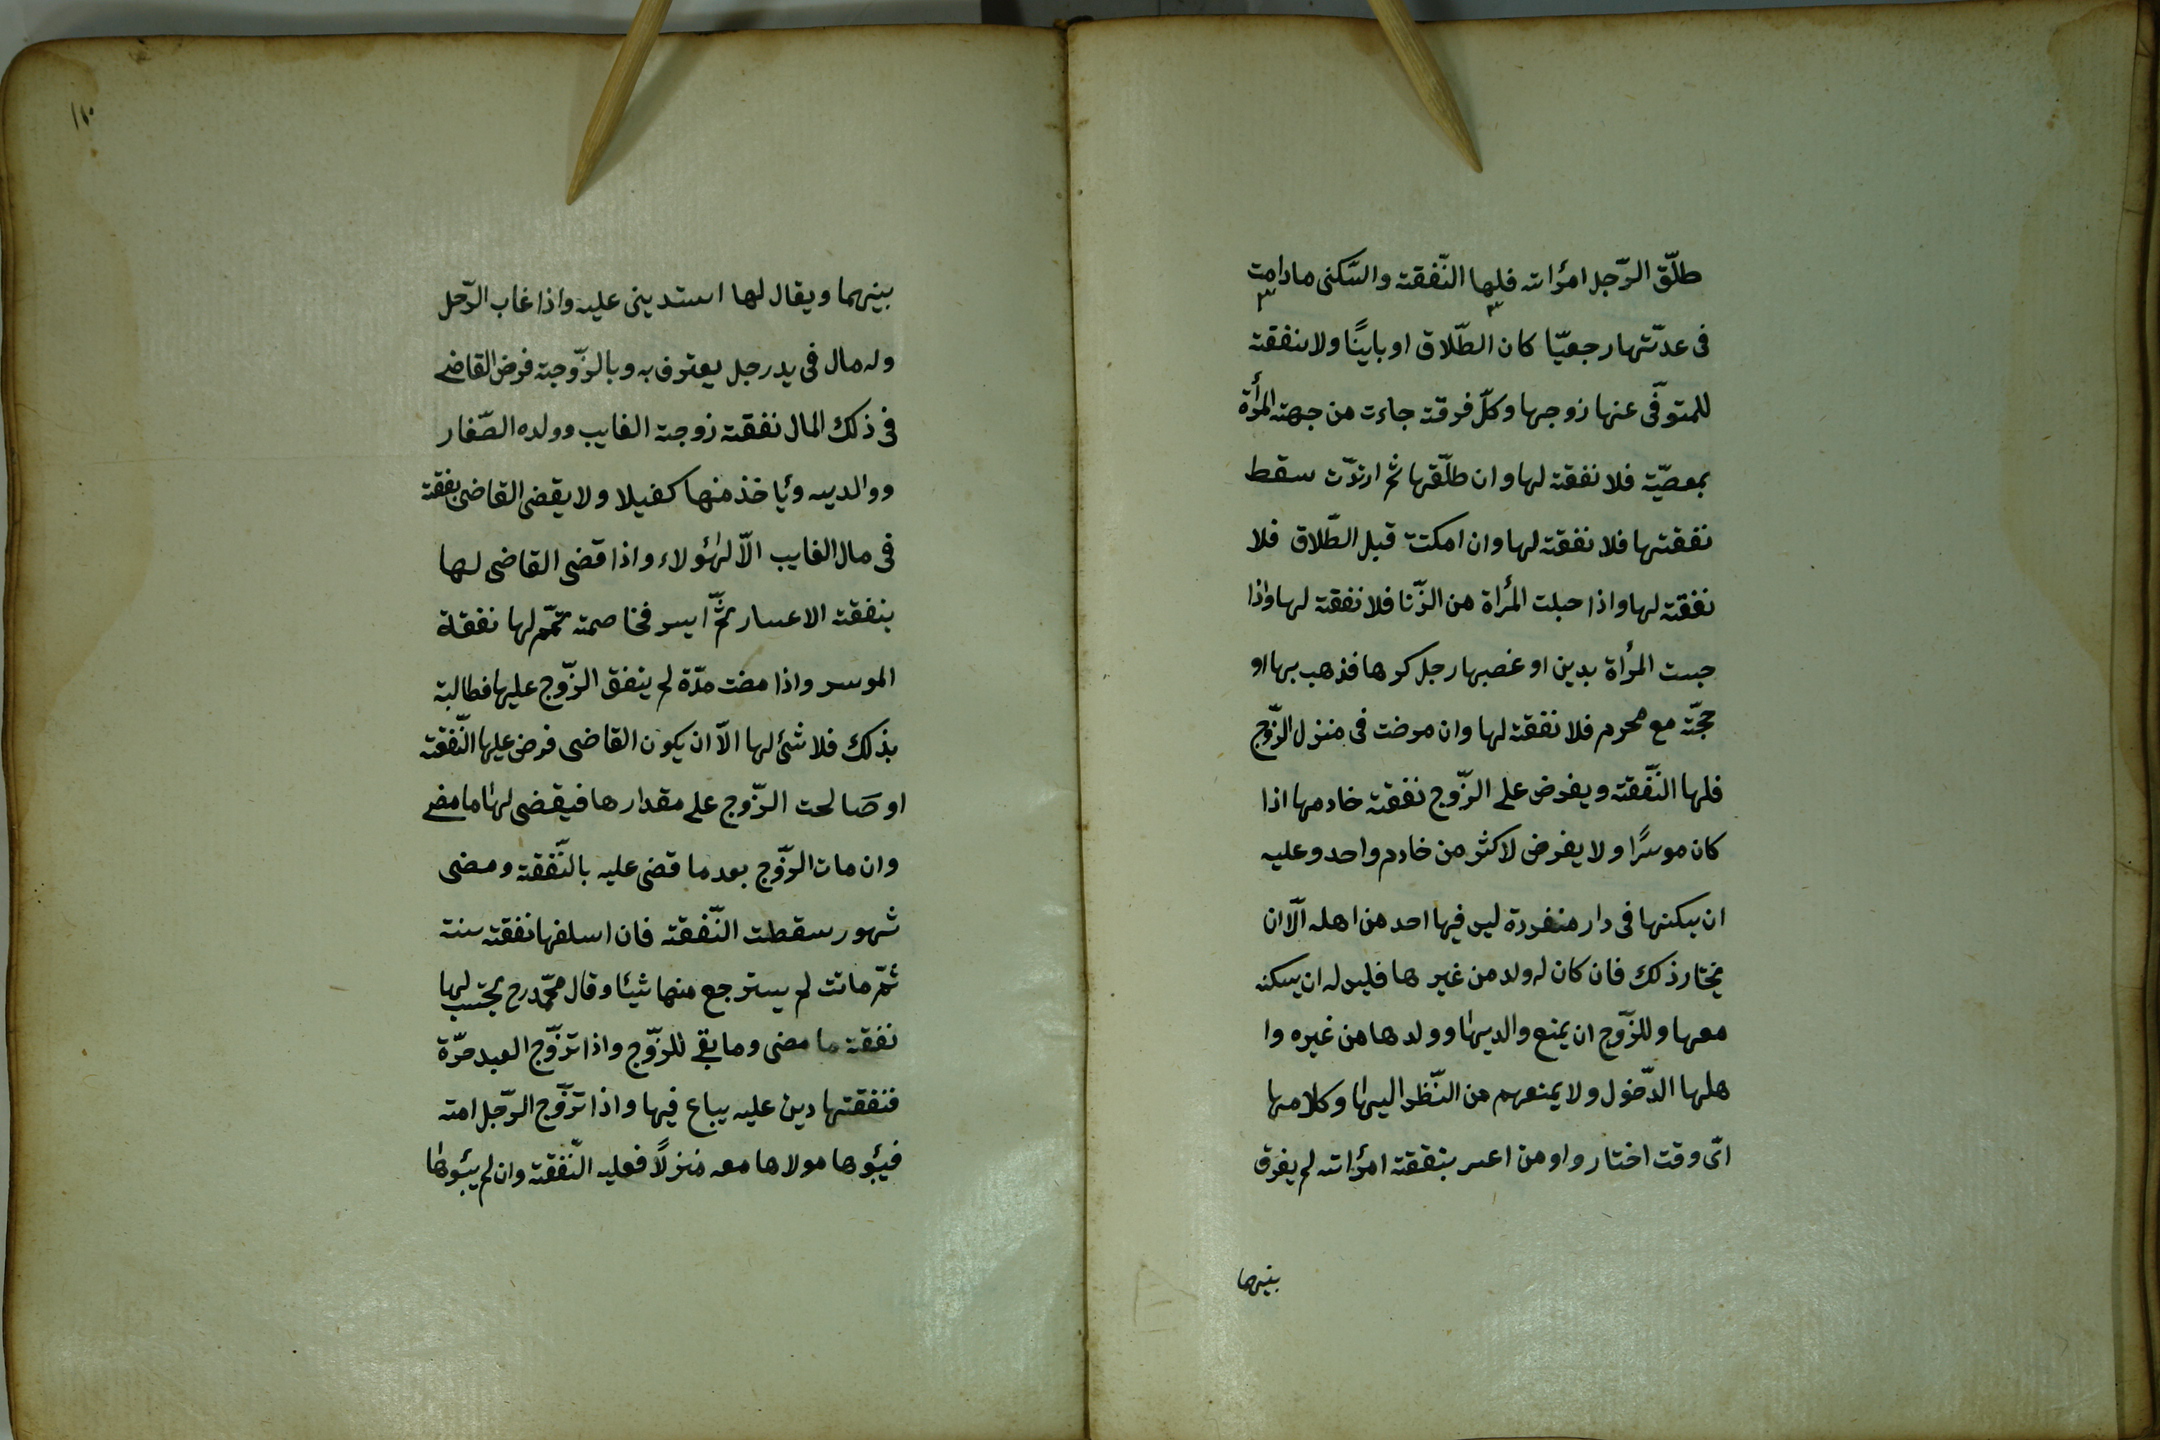 طلّق الرّجل امرٔاته فلها النّفقة والسّكنى مادامت
فى عدّتها رجعيّا كان الطّلاق او باينًا ولا نفقة
للمتوفّى عنها زوجها وكلّ فرقة جاءت من جهة المرأة
بمعصيّة فلا نفقة لها وان طلّقها ثم ارتدّت سقط
نفقتها فلا نفقة لها وان امكنت قبل الطّلاق فلا
نفقة لها واذا حبلت المرأة من الزّنا فلا نفقة لها واذا
حبست المرأة بدين او غصبها رجل كرها فذهب بها او
حجّة مع محرم فلا نفقة لها وان مرضت فى منزل الزّوج
فلها النّفقة ويفرض على الزّوج نفقة خادمها اذا
كان موسرًا ولا يفرض لاكثر من خادم واحد وعليه
ان يسكنها فى دار منفردة ليس فيها احد من اهله الّا ان
يختار ذلك فان كان له ولد من غيرها فليس له ان يسكنه
معها وللزّوج ان يمنع والديها وولدها من غيره وا
هلها الدّخول ولا يمنعهم من النّظر اليها وكلامها
اىّ وقت اختاروا ومن اعسر بنفقة امرٔاته لم يفرق
بينهما
١٢٠
بينهما ويقال لها استدينى عليه واذا غاب الرّجل
وله مال فى يد رجل يعترف به وبالزّوجة فرض القاضى
فى ذلك المال نفقة زوجة الغايب وولده الصّغار
ووالديه ويأخذ منها كفيلا ولا يقضى القاضى بنفقة
فى مال الغايب الّا لهٰؤلاء واذا قضى القاضى لها
بنفقة الاعسار ثمّ ايسر فخاصمته تمّم لها نفقة
الموسر واذا مضت مدّة لم ينفق الزّوج عليها فطالبته
بذلك فلا شئ لها الّا ان يكون القاضى فرض عليها النّفقة
او صالحت الزّوج على مقدارها فيقضى لها ما مضى
وان مات الزّوج بعد ما قضى عليه بالنّفقة ومضى
شهور سقطت النّفقة فان اسلفها نفقة سنة
ثمّ ماتت لم يسترجع منها شيئا وقال محمّد رح يحتسب لها
نفقة ما مضى وما بقى للزّوج واذا تزّوج العبد حرّة
فنفقتها دين عليه يباع فيها واذا تزّوج الرّجل امة
فيبؤها مولاها معه منزلًا فعليه النّفقة وان لم يبؤها